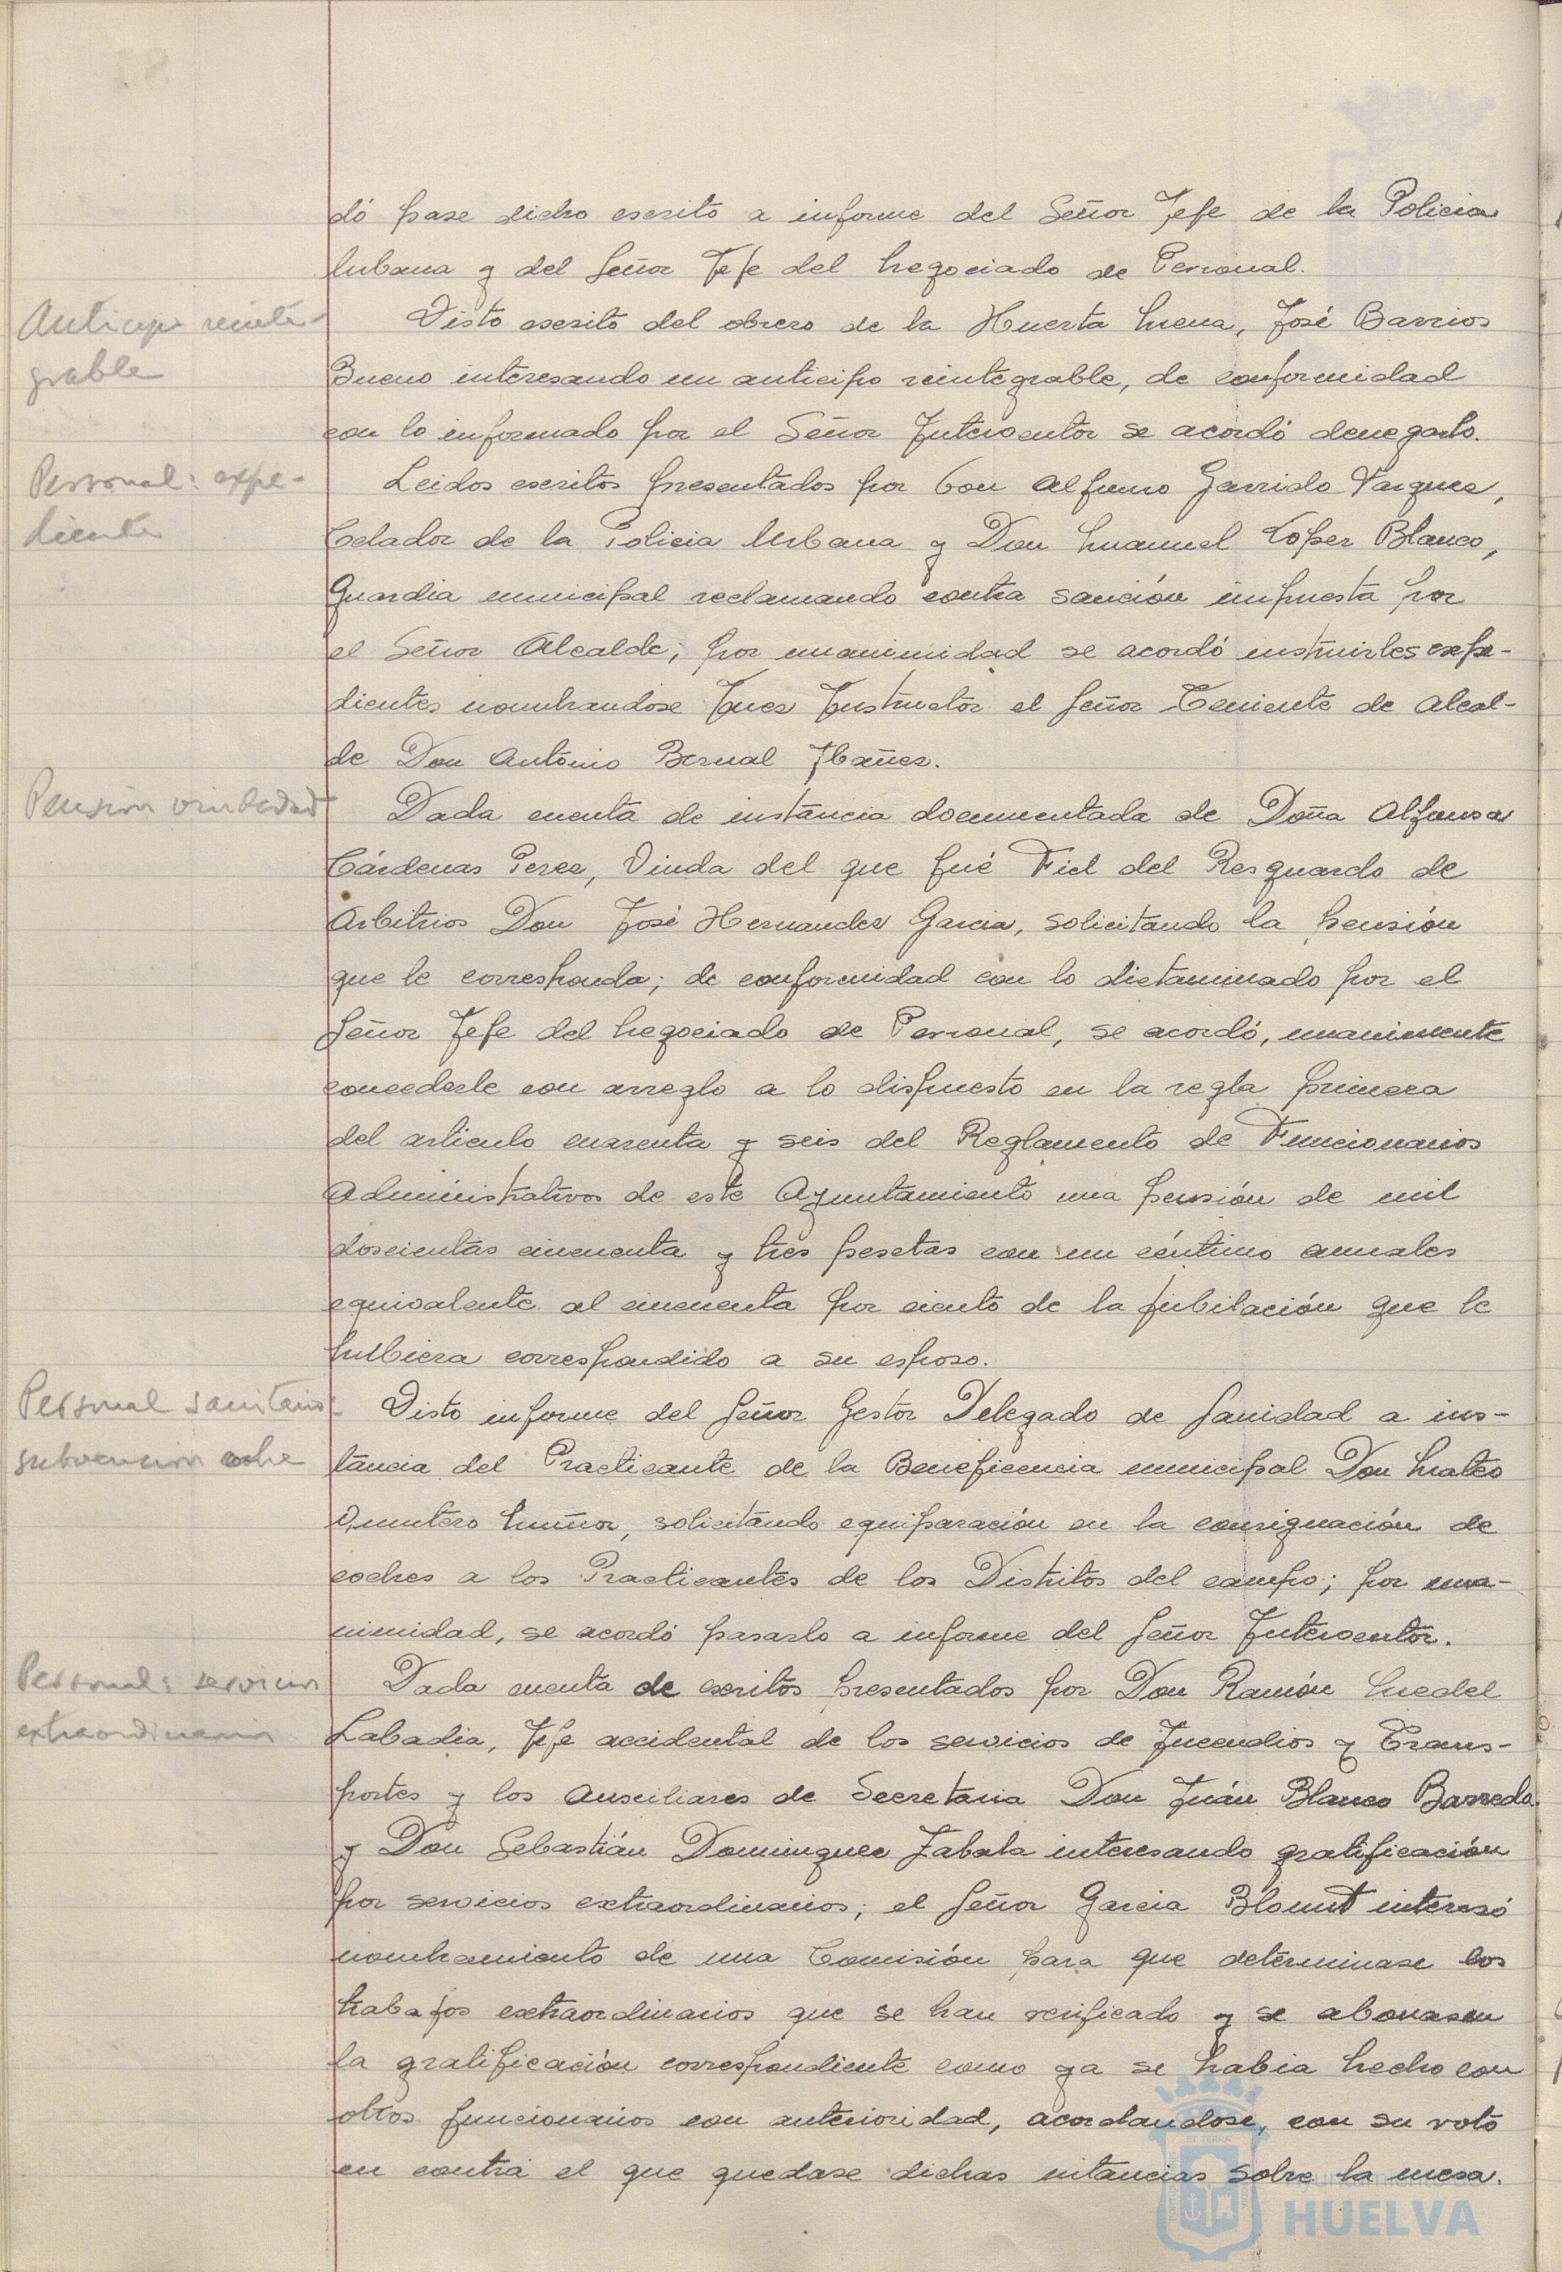 dó pase dicho escrito a informe del Señor Jefe de la Policia
Urbana y del Señor Jefe del Negociado de Personal.
Anticipo reinte-
grable
Visto escrito del obrero de la Huerta Mena, José Barrios
Bueno interesando un anticipo reintegrable, de conformidad
con lo informado por el Señor Interventor se acordó denegarlo.
Personal: expe-
diente
Leidos escritos presentados por Don Alfonso Garrido Vazquez,
Celador de la Policia Urbana y Don Manuel Lopez Blanco,
Guardia municipal reclamando contra sanción impuesta por
el Señor Alcalde; por unanimidad se acordó instruirles expe-
dientes nombrandose Juez Instructor el Señor Teniente de Alcal-
de Don Antonio Bernal Ibañez.
Pension viudedad
Dada cuenta de instancia documentada de Doña Alfonsa
Cárdenas Perez, Viuda del que fué Fiel del Resguardo de
Arbitrios Don José Hernandez Garcia, solicitando la pensión
que le corresponda; de conformidad con lo dictaminado por el
Señor Jefe del Negociado de Personal, se acordó, unanimente
concederle con arreglo a lo dispuesto en la regla primera
del articulo cuarenta y seis del Reglamento de Funcionarios
Administrativos de este Ayuntamiento una pensión de mil
doscientas cincuenta y tres pesetas con un céntimo anuales
equivalente al cincuenta por ciento de la jubilación que le
hubiera correspondido a su esposo.
Personal sanitario
subvencion coche
Visto informe del Señor Gestor Delegado de Sanidad a ins-
tancia del Practicante de la Beneficencia municipal Don Mateo
Quintero Muñoz, solicitando equiparación en la consignación de
coches a los Practicantes de los Distritos del campo; por una-
nimidad, se acordó pasarlo a informe del Señor Interventor.
Personal: servicios
extraordinarios
Dada cuenta de escritos presentados por Don Ramón Muedel
Labadia, Jefe accidental de los servicios de Incendios y Trans-
portes y los Auxiliares de Secretaria Don Juán Blanco Barreda
y Don Sebastián Dominguez Zabala interesando gratificación
por servicios extraordinarios; el Señor Garcia Blount interesó
nombramiento de una Comisión para que determinase los
trabajos extraordinarios que se han verificado y se abonasen
la gratificación correspondiente como ya se habia hecho con
otros funcionarios con anterioridad, acordandose, con su voto
en contra el que quedase dichas intancias sobre la mesa.
Ayuntamiento de
HUELVA